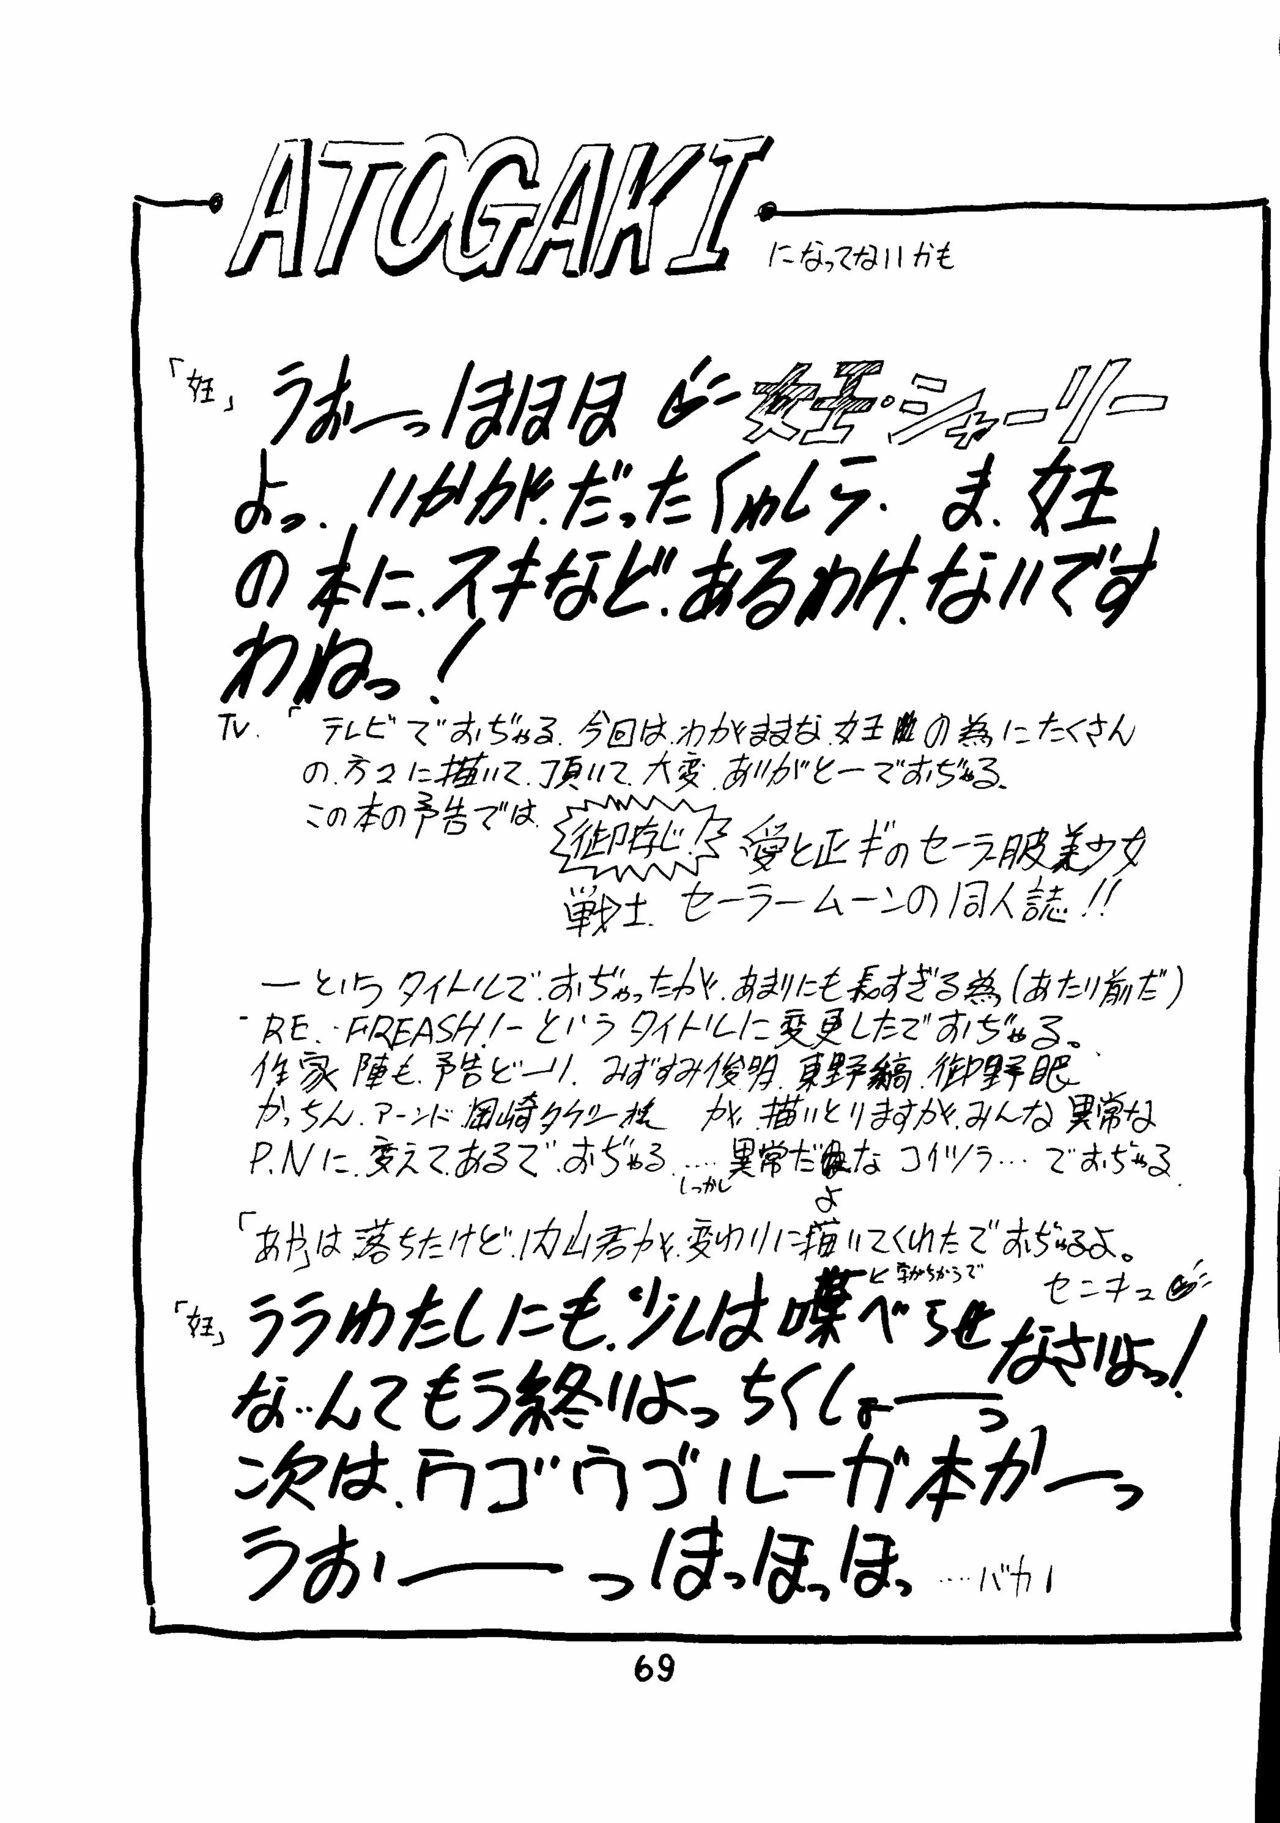 ATOGAKI
になってないかも
「女王」うおーっほほほ 女王・シャーリー
よっ、いかが、だったくゎしら、ま、女王
の本に、スキなど、あるわけ、ないです
わねっ！
TV.「テレビでおぢゃる、今回は、わがままな、女王の為にたくさん
の、方々に描いて、頂いて、大変、ありがとーでおぢゃる、
この本の予告では、
御存じ！ 愛と正ギのセーラー服美少女
戦士 セーラームーンの同人誌！！
ーというタイトルで、おぢゃったが、あまりにも長すぎる為（あたり前だ）
RE・FREASH！ーというタイトルに変更したでおぢゃる。
作家陣も、予告どーり、みずすみ俊明、東野縞、御野眼
かっちん、アーンド、岡崎タケシ様 が、描いとりますが、みんな異常な
P.Nに、変えて、あるで、おぢゃる、……しっかし異常だよなコイツラ…でおぢゃる
「あやは落ちたけど、内山君が、変わりに描いてくれたでおぢゃるよ。
セニキュ
「女王」ララわたしにも、少しは喋べらせなさいよっ！
な、んてもう終りよっちくしょーっ
次は、ウゴウゴルーガ本かーっ
うおぃーっほっほっほっ …バカ！
69